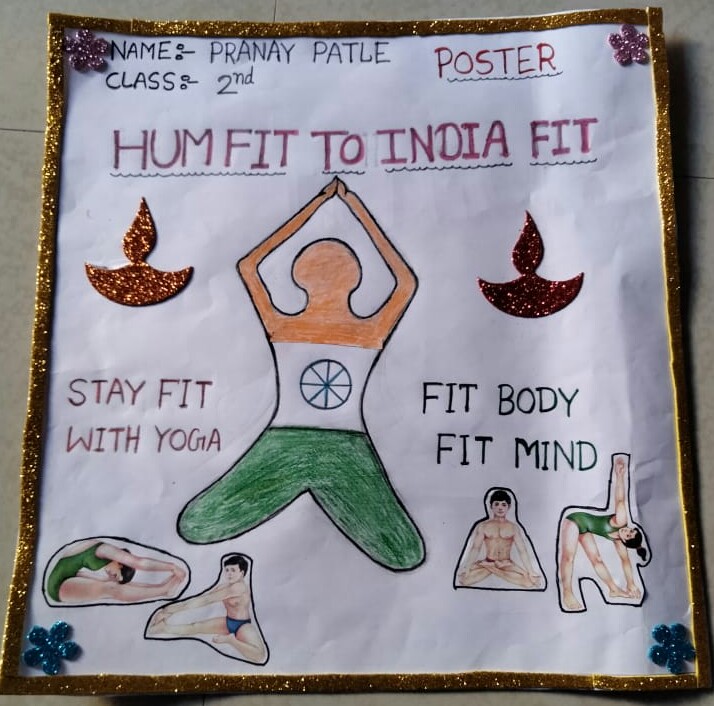 NAME:- PRANAY PATLE
POSTER
CLASS:- 2nd
HUM FIT TO INDIA FIT
STAY FIT
WITH YOGA
FIT BODY
FIT MIND